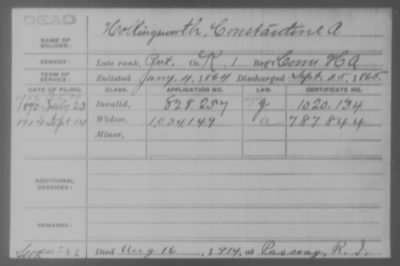 DEAD
NAME OF SOLDIER: Hollingsworth, Constantine A
SERVICE: Late rank, Pvt. Co. K, 1 Reg't Conn H A
TERM OF SERVICE: Enlisted Jany. 4, 1864 Discharged Sept. 25, 1865.
DATE OF FILING. CLASS. APPLICATION NO. LAW. CERTIFICATE NO.
1890 July 23 Invalid, 828.257 1020.134
1914 Sept 14 Widow, 1,034,149 a 787844
Minor,
ADDITIONAL SERVICES:
REMARKS:
Died Aug 16, 1914, at Pascoag, R. I.